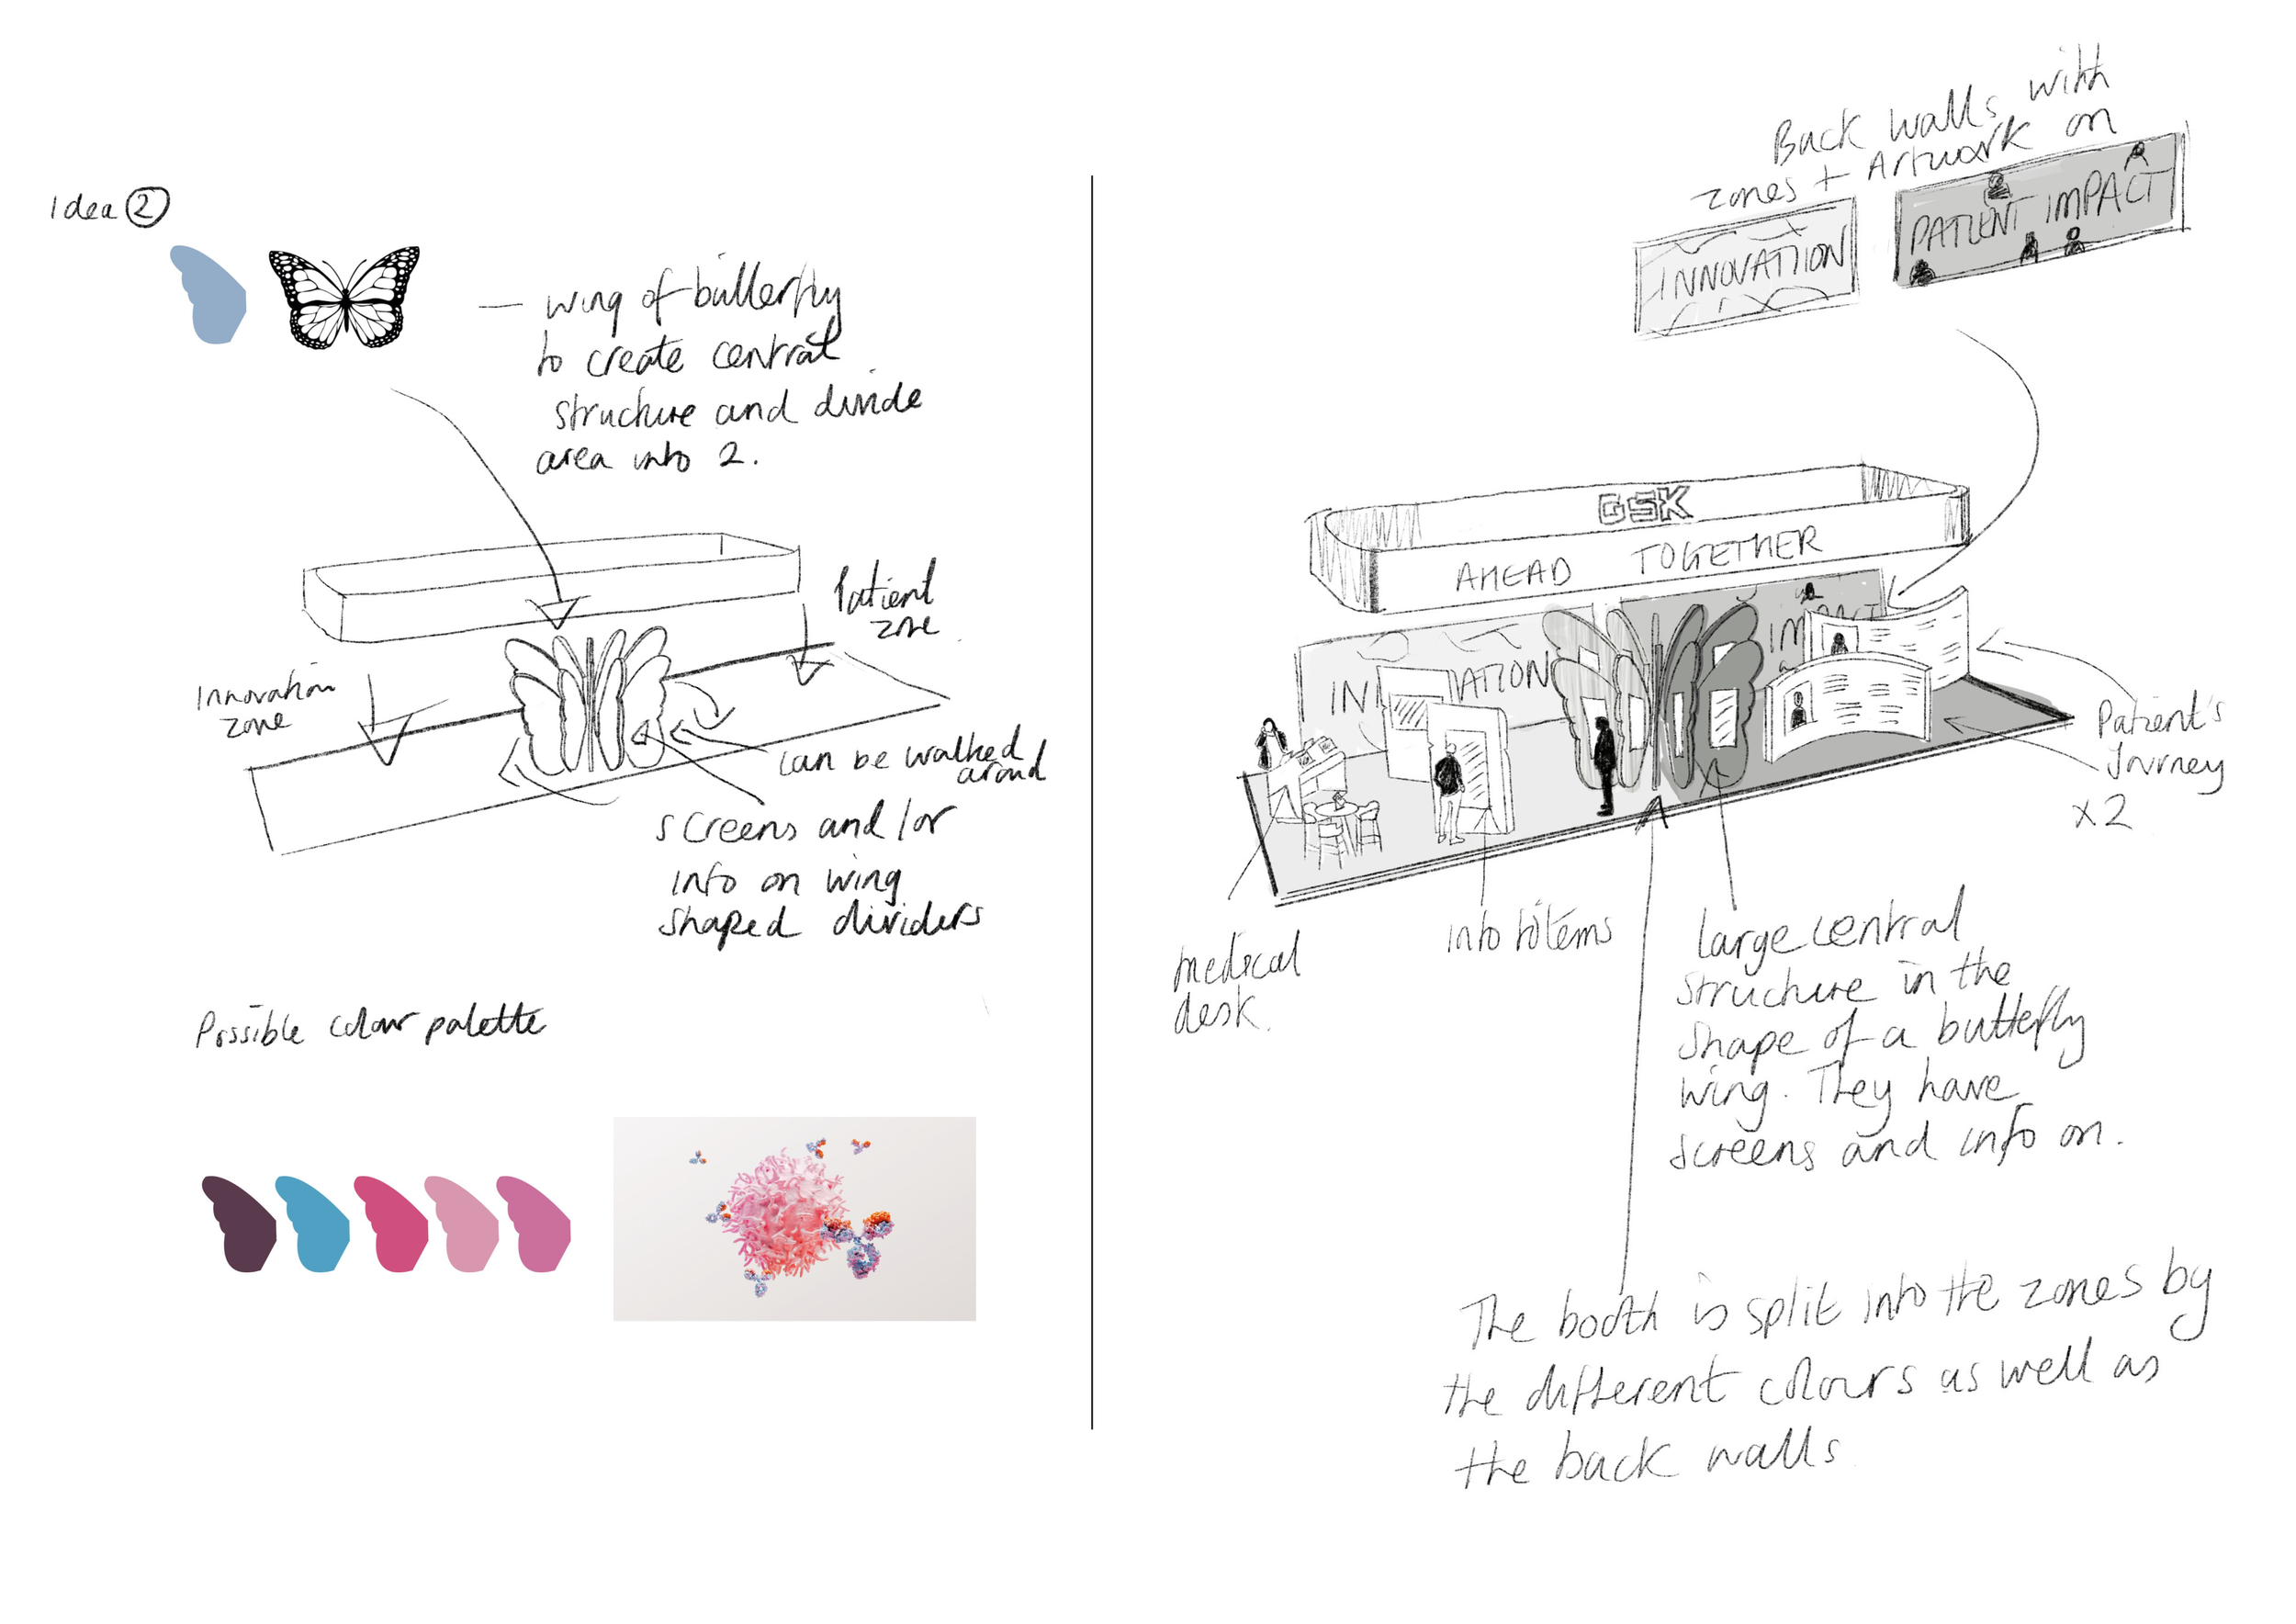 Idea 2
— wing of butterfly
to create central
structure and divide
area into 2.
Patient
zone
Innovation
zone
can be walked
around
screens and/or
info on wing
shaped dividers
Possible colour palette
Back walls with
zones + Artwork on
INNOVATION
PATIENT IMPACT
GSK
AHEAD TOGETHER
INNOVATION
IMPACT
Patient's
Journey
x2
medical
desk.
info totems
large central
structure in the
shape of a butterfly
wing. They have
screens and info on.
The booth is split into the zones by
the different colours as well as
the back walls